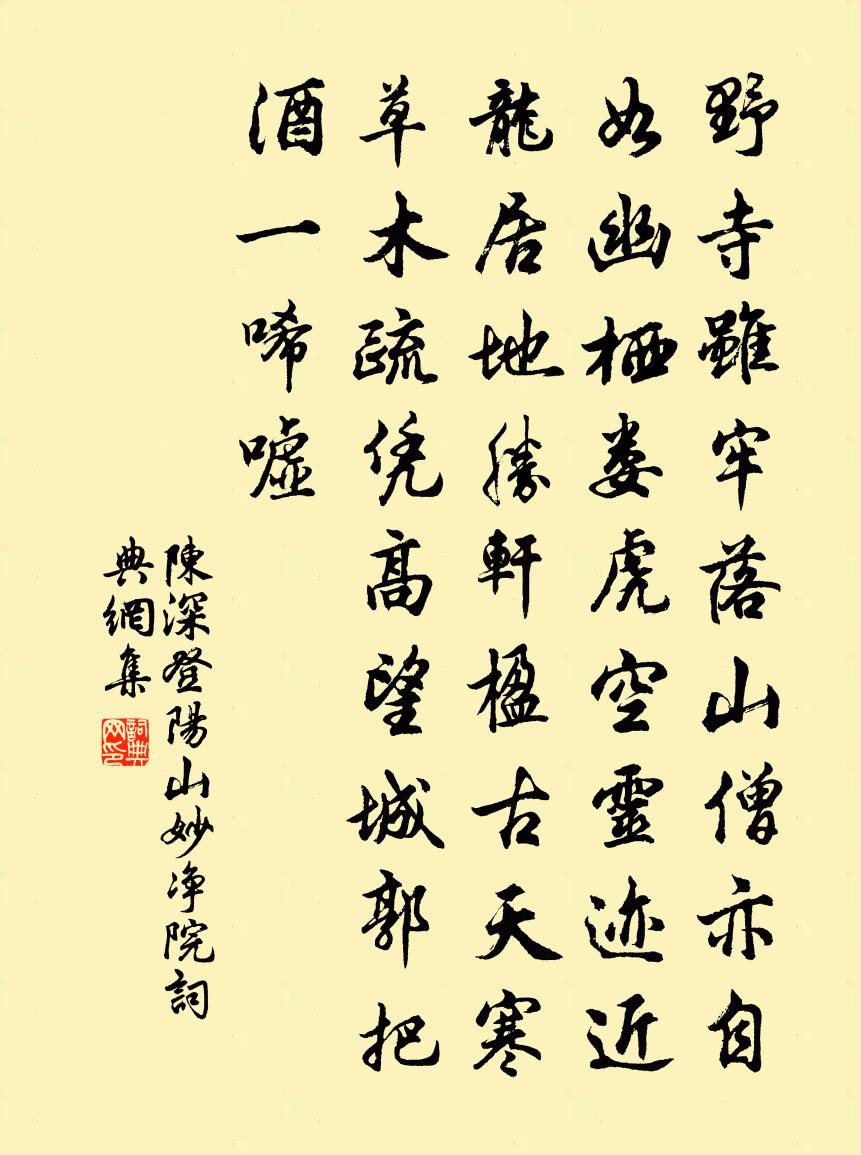 野寺雖牢落山僧亦自
如幽栖娄虎空靈迹近
龍居地勝軒楹古天寒
草木疏凭高望城郭把
酒一唏嘘
陳深登陽山妙净院詞
典網集
詞典网印